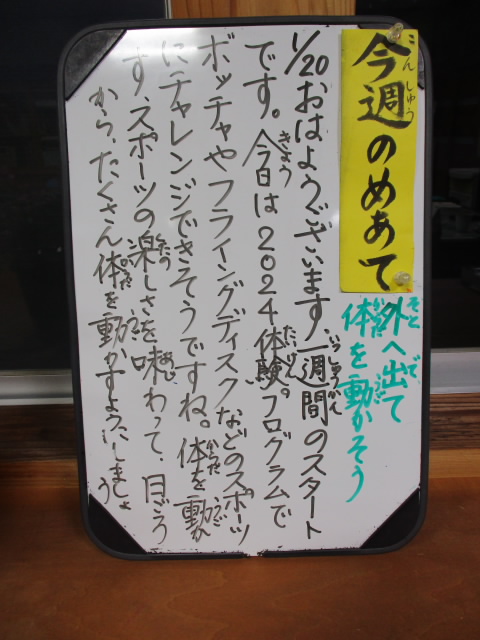 こんしゅう
今週のめあて
そと で
外へ出て
からだ うご
体を動かそう
いっしゅうかん
1/20 おはようございます、一週間のスタート
きょう たいけん
です。今日は2024体験プログラムで
ボッチャやフライングディスクなどのスポーツ
からだ うご
にチャレンジできそうですね。体を動か
たの あじ
す、スポーツの楽しさを味わって、日ごろ
からだ うご
から、たくさん体を動かすようにしましょ
う